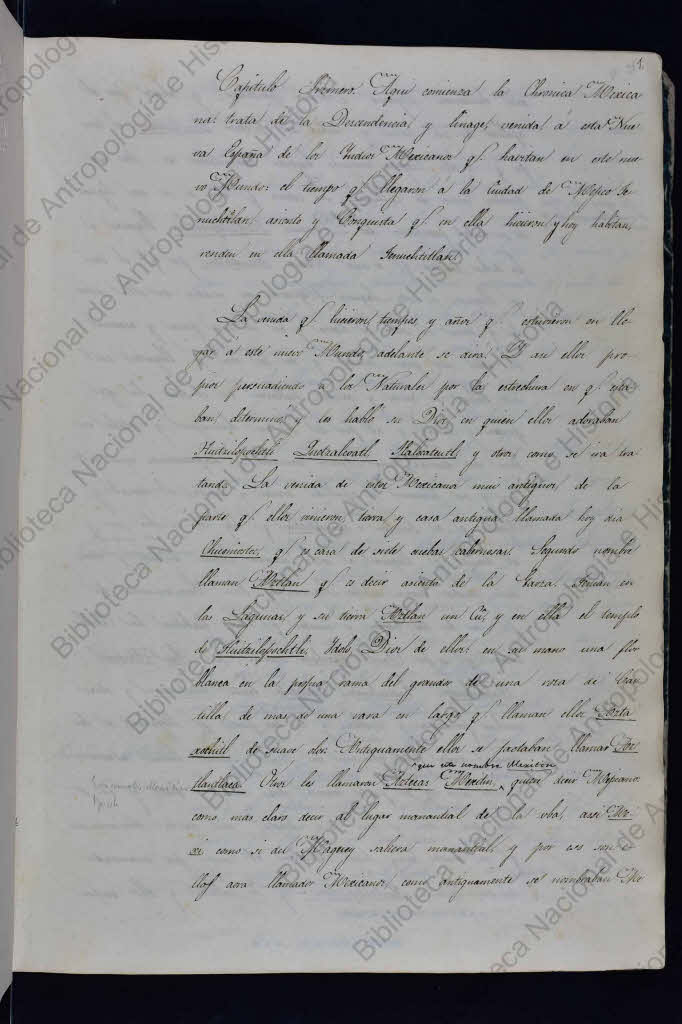 1.
Capitulo Primero. Aqui comienza la Chronica Mexica
na: trata de la Descendencia, y linage, venida á esta Nue
va España de los Indios Mexicanos q.^ havitan en este nue
vo Mundo: el tiempo q.^ llegaron á la Ciudad de Mexico Te
nuchtitlan, asiento y Conquista q.^ en ella hicieron y hoy habitan,
residen en ella llamada Tenuchtitlan.
La venida q.^ hicieron, tiempos, y años q.^ estuvieron en lle
gar á este nuevo Mundo, adelante se dirá. Y asi ellos pro
pios persuadiendo á los Naturales por la estrechura en q.^ esta
ban, determinó, y les habló su Dios en quien ellos adoraban
Huitzilopochtli Quetzalcoatl Tlalocateuctl, y otros como se irá tra
tando. La venida de estos Mexicanos mui antiguos de la
parte q.^ ellos vinieron, tierra y casa antigua llamada hoy dia
Chicomoztoc, q.^ es casa de siete cuebas cabernosas. Segundo nombre
llaman Aztlan q.^ es decir asiento de la Garza. Tenian en
las Lagunas, y su tierra Aztlan un Cú, y en ella el templo
de Huitzilopochtli, Idolo, Dios de ellos: en su mano una flor
blanca en la propia rama del grandor de una rosa de Cas
tilla de mas de una vara en largo, q.^ llaman ellos Azta
xochitl de suave olor. Antiguamente ellos se jactaban llamar Az
tlantlaca. Otros les llamaron Aztecas Mexitin,
que este nombre Mexitin
quiere decir Mexicano:
como mas claro decir al lugar manantial de la uba, assi Me-
xi como si del Maguey saliera manantial, y por eso son e
llos aora llamados Mexicanos, como antiguamente se nombraban Me